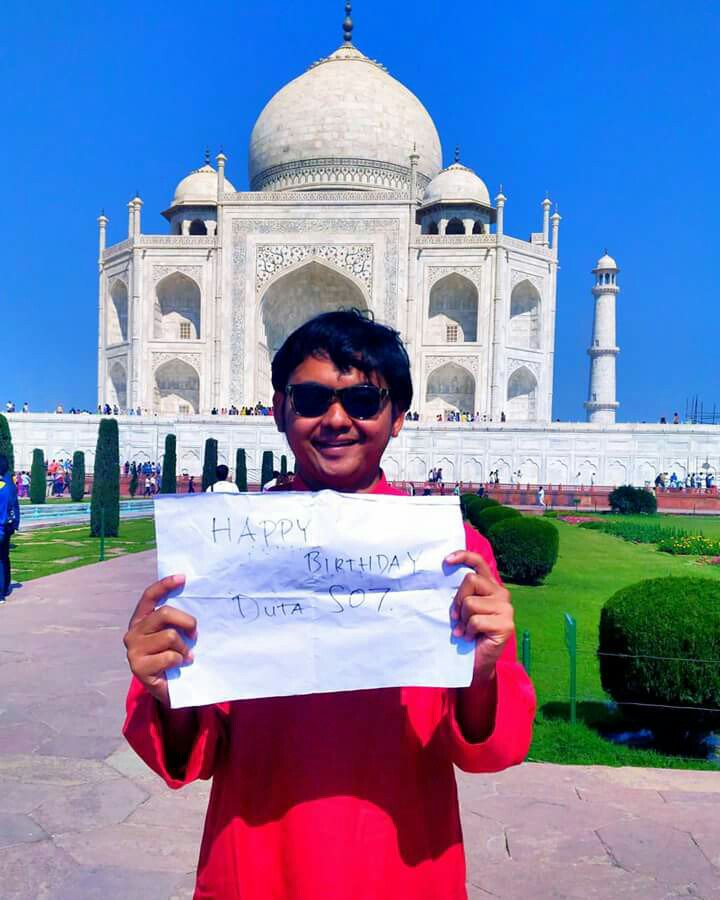 HAPPY
BIRTHDAY
DUTA SO7.